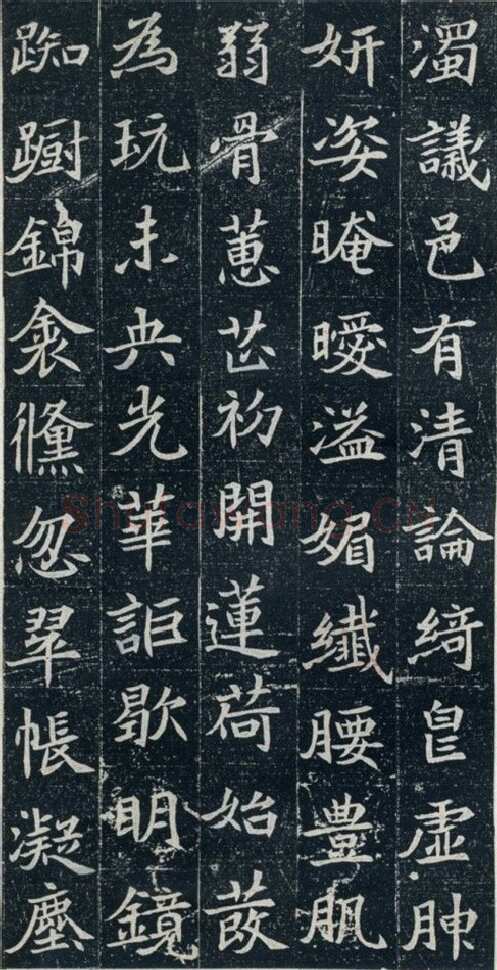 濁議邑有清論綺皀虛胂
妍姿晻曖溢媚纖腰豊肌
弱骨蕙芷初開蓮荷始
為玩未央光華詎歇明鏡
踟蹰錦衾儵忽翠帳凝塵